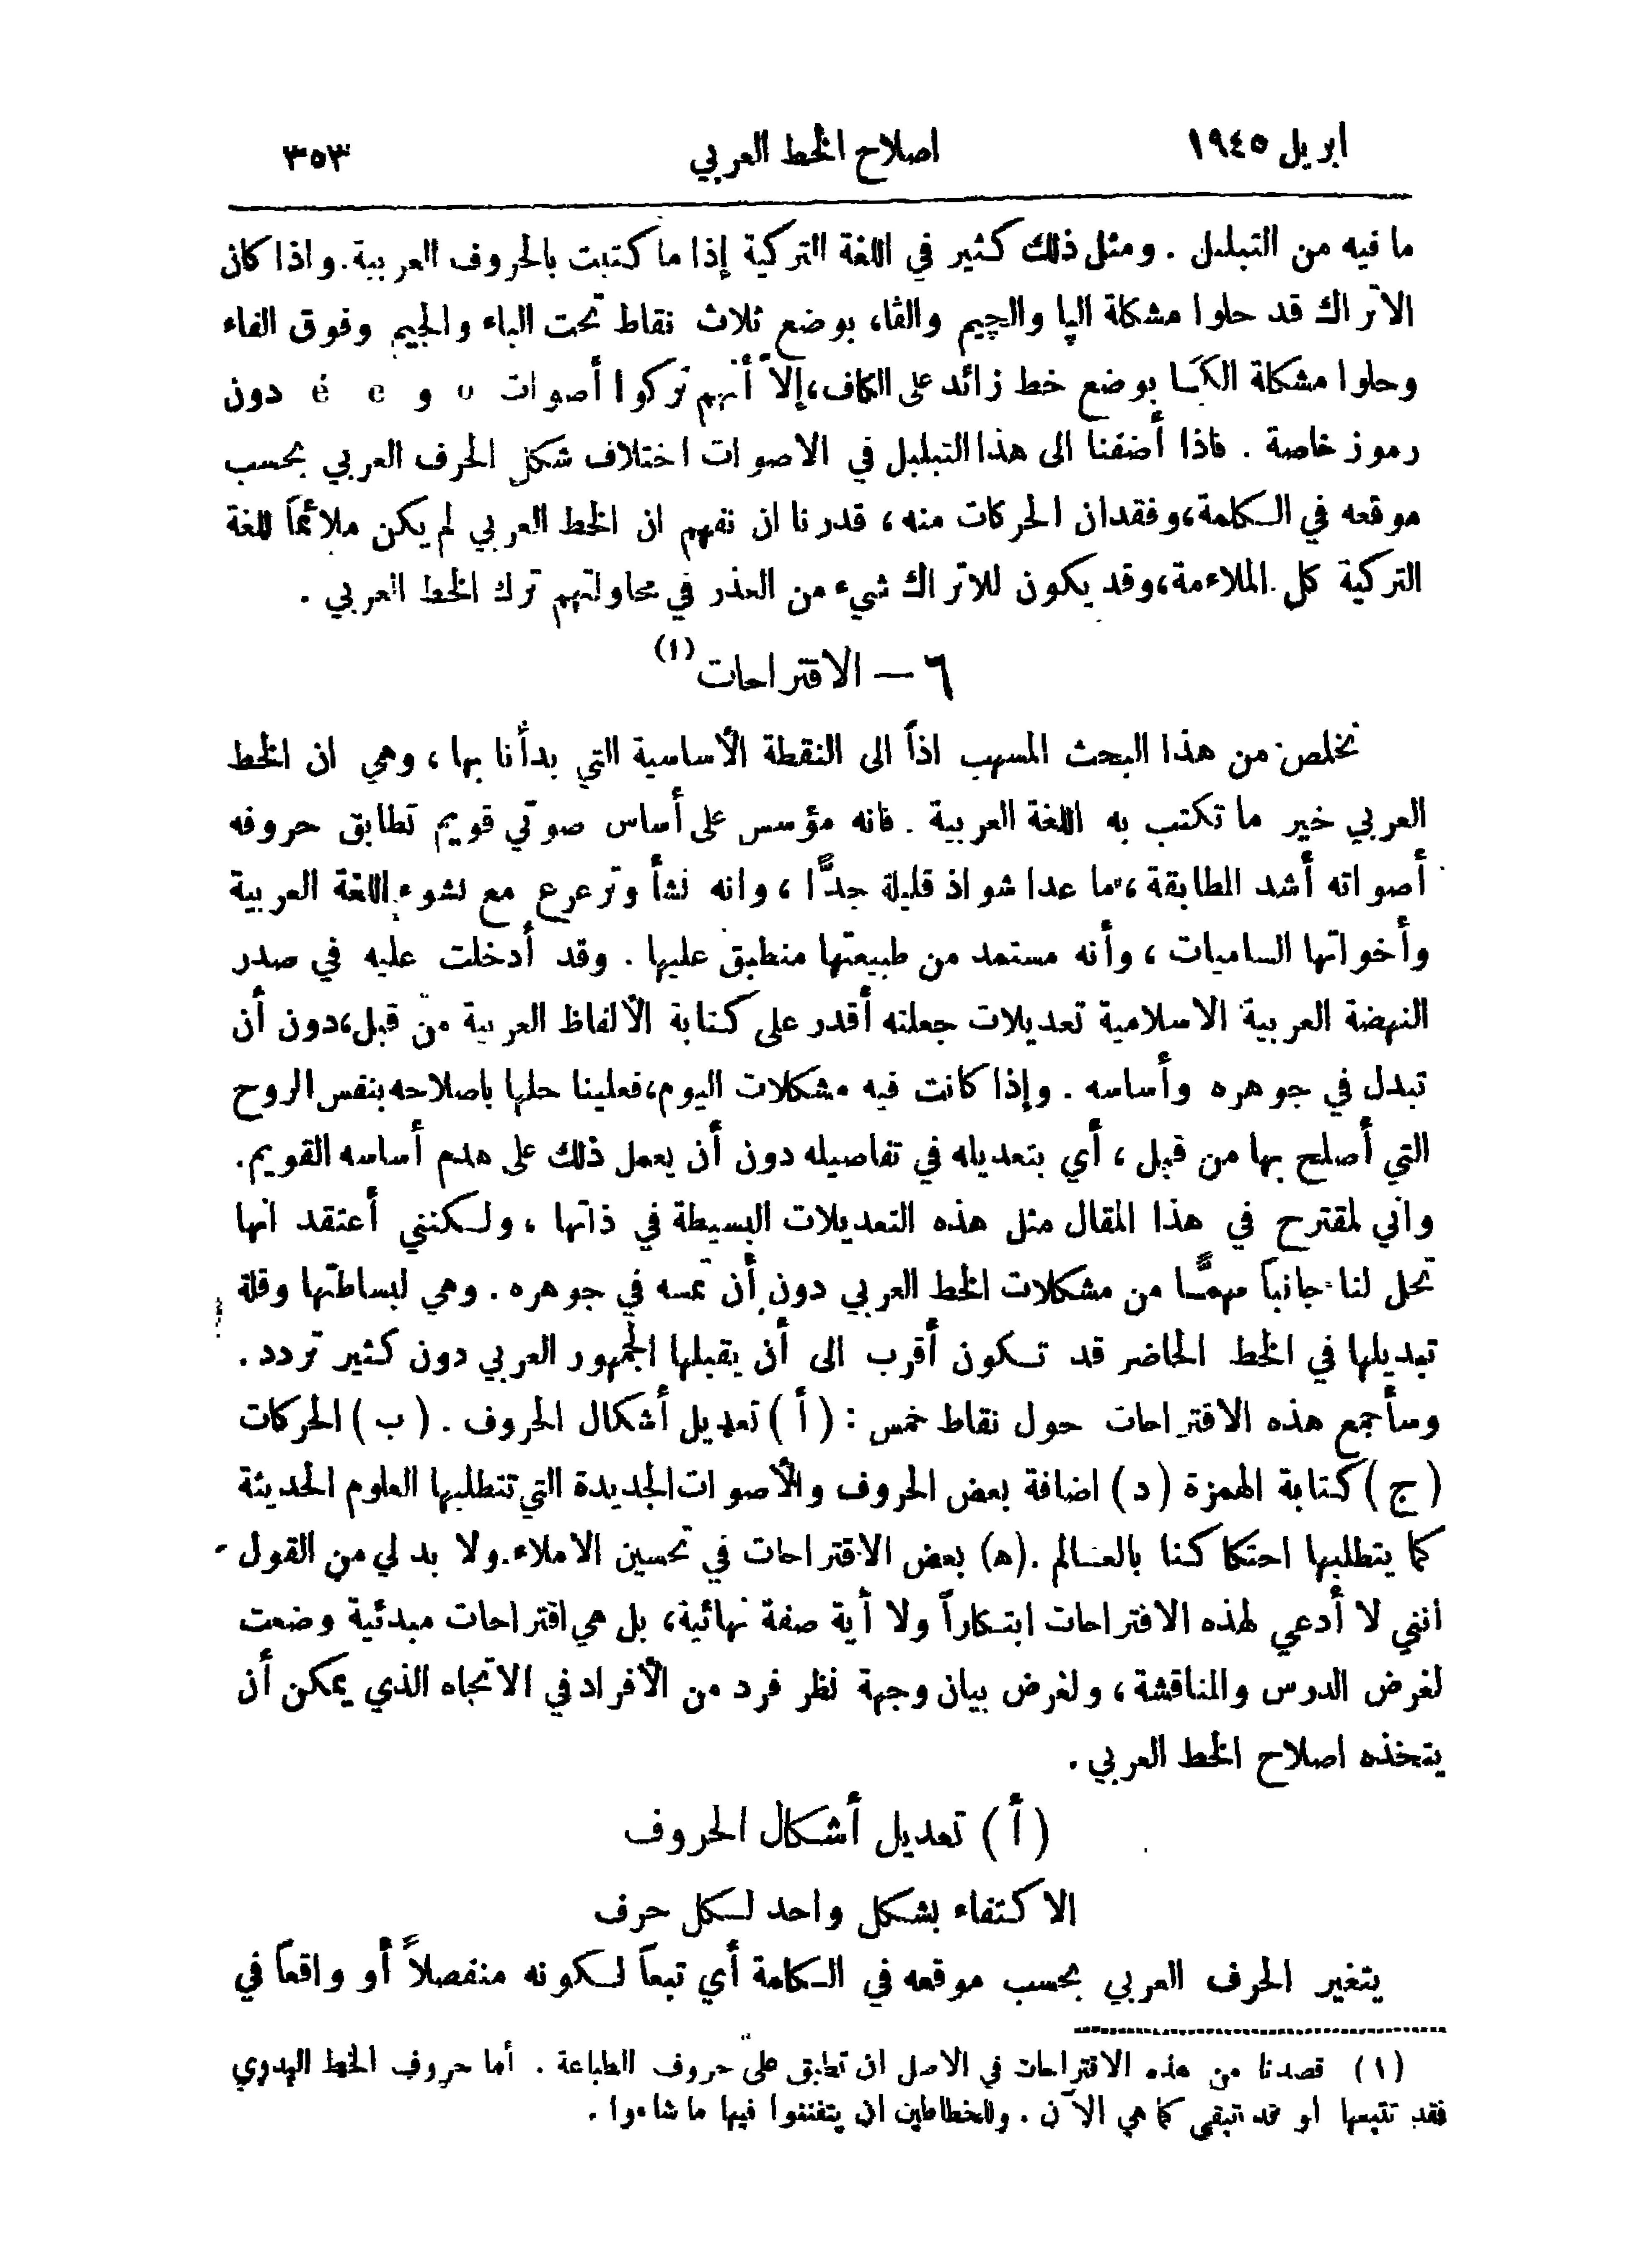 ابريل ١٩٤٥ اصلاح الخط العربي ٣٥٣
ما فيه من التبلبل . ومثل ذلك كثير في اللغة التركية إذا ما كتبت بالحروف العربية. واذا كان
الاتراك قد حلوا مشكلة الپا والچيم والڤاء بوضع ثلاث نقاط تحت الباء والجيم وفوق الفاء
وحلوا مشكلة الگا بوضع خط زائد على الكاف، إلاّ أنهم تركوا أصوات o و e é دون
رموز خاصة . فاذا أضفنا الى هذا التبلبل في الاصوات اختلاف شكل الحرف العربي بحسب
موقعه في الكلمة، وفقدان الحركات منه ، قدرنا ان نفهم ان الخط العربي لم يكن ملائماً للغة
التركية كل الملاءمة، وقد يكون للاتراك شيء من العذر في محاولتهم ترك الخط العربي .
٦ — الاقتراحات (١)
نخلص من هذا البحث المسهب اذاً الى النقطة الأساسية التي بدأنا بها ، وهي ان الخط
العربي خير ما تكتب به اللغة العربية . فانه مؤسس على أساس صوتي قويم تطابق حروفه
أصواته أشد المطابقة ، ما عدا شواذ قليلة جدًّا ، وانه نشأ وترعرع مع نشوء اللغة العربية
وأخواتها الساميات ، وأنه مستمد من طبيعتها منطبق عليها . وقد أدخلت عليه في صدر
النهضة العربية الاسلامية تعديلات جعلته أقدر على كتابة الألفاظ العربية من قبل، دون أن
تبدل في جوهره وأساسه . وإذا كانت فيه مشكلات اليوم، فعلينا حلها باصلاحه بنفس الروح
التي أصلح بها من قبل ، أي بتعديله في تفاصيله دون أن يعمل ذلك على هدم أساسه القويم.
واني لمقترح في هذا المقال مثل هذه التعديلات البسيطة في ذاتها ، ولكنني أعتقد انها
تحل لنا جانباً مهمًّا من مشكلات الخط العربي دون أن تمسه في جوهره . وهي لبساطتها وقلة
تبديلها في الخط الحاضر قد تكون أقرب الى أن يقبلها الجمهور العربي دون كثير تردد .
وسأجمع هذه الاقتراحات حول نقاط خمس : ( أ ) تعديل أشكال الحروف . ( ب ) الحركات
( ج ) كتابة الهمزة ( د ) اضافة بعض الحروف والأصوات الجديدة التي تتطلبها العلوم الحديثة
كما يتطلبها احتكاكنا بالعالم . (ه) بعض الاقتراحات في تحسين الاملاء. ولا بد لي من القول
انني لا أدعي لهذه الاقتراحات ابتكاراً ولا أية صفة نهائية، بل هي اقتراحات مبدئية وضعت
لغرض الدرس والمناقشة ، ولغرض بيان وجهة نظر فرد من الأفراد في الاتجاه الذي يمكن أن
يتخذه اصلاح الخط العربي .
( أ ) تعديل أشكال الحروف
الاكتفاء بشكل واحد لكل حرف
يتغير الحرف العربي بحسب موقعه في الكلمة أي تبعاً لكونه منفصلاً أو واقعاً في
(١) قصدنا من هذه الاقتراحات في الاصل ان تطبق على حروف الطباعة . أما حروف الخط اليدوي
فقد تتبعها او قد تبقى كما هي الآن . وللخطاطين ان يتفننوا فيها ما شاءوا .